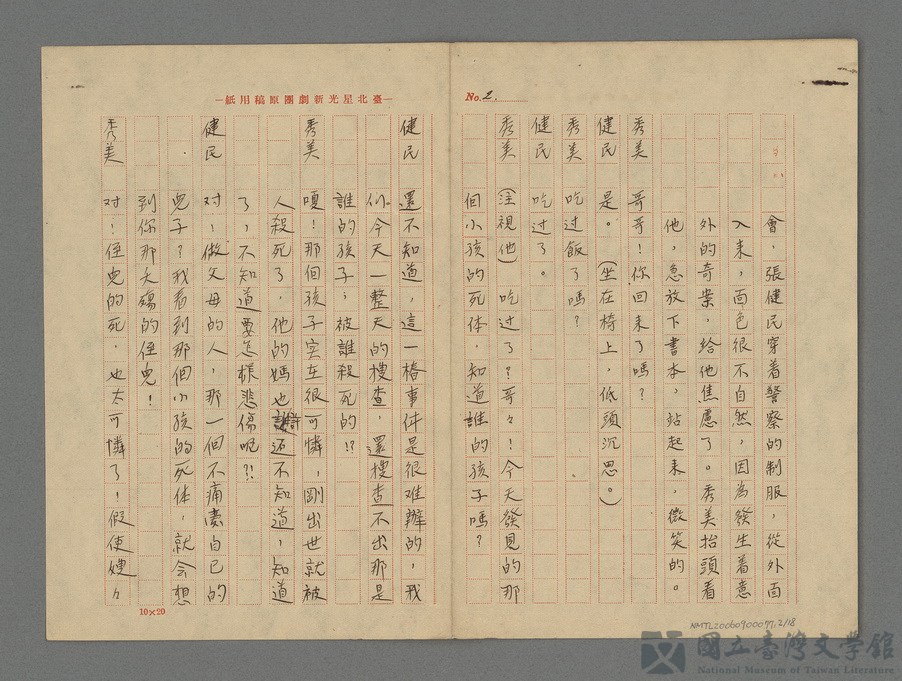 No. 2.
會，張健民穿着警察的制服，從外面
入来，面色很不自然，因為發生着意
外的奇案，給他焦慮了。秀美抬頭看
他，急放下書本，站起来，微笑的。
秀美 哥哥！你回来了嗎？
健民 是。（坐在椅上，低頭沉思。）
秀美 吃过飯了嗎？
健民 吃过了。
秀美 （注視他）吃过了？哥々！今天發見的那
個小孩的死体，知道誰的孩子嗎？
—臺北星光新劇團原稿用紙—
健民 還不知道，這一樁事件是很难辦的，我
们今天一整天的搜查，還搜查不出那是
誰的孩子，被誰殺死的！？
秀美 嗄！那個孩子实在很可憐，剛出世就被
人殺死了，他的媽也許还不知道，知道
了，不知道要怎樣悲傷呢？！
健民 对！做父母的人，那一個不痛愛自己的
兒子？我看到那個小孩的死体，就会想
到你那夭殤的侄兒！
秀美 对！侄兒的死，也太可憐了！假使嫂々
10×20
NMTL20060900077.2/18
國立臺灣文學館
National Museum of Taiwan Literature